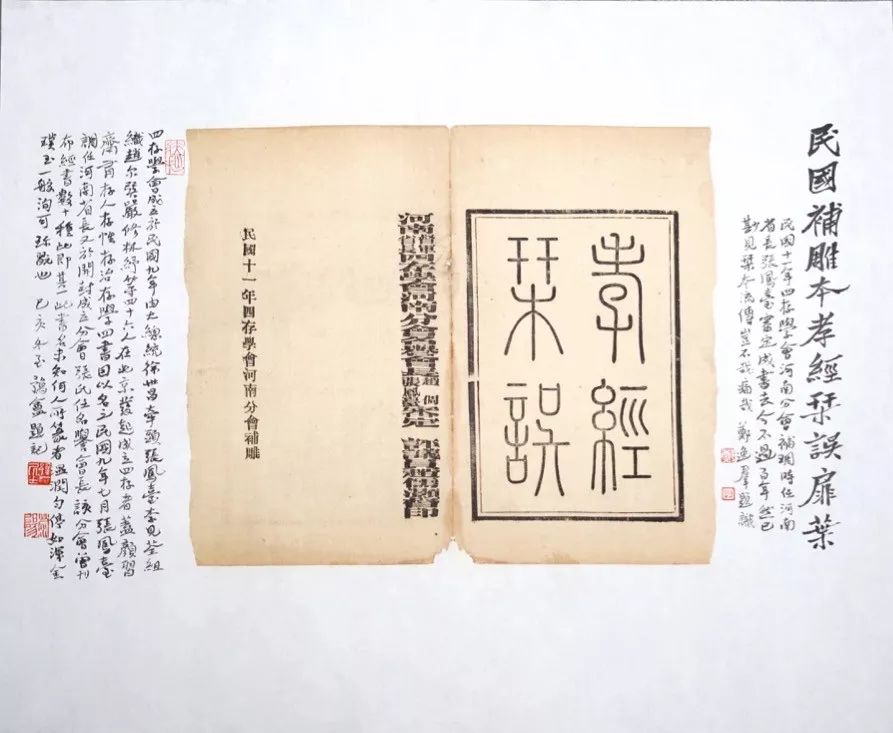 民國補雕本孝經栞誤扉葉
民國十一年四存學會河南分會補雕時任河南
省長張鳳臺審定成書去今不過百年然已
尟見栞本流傳豈不哉痛哉 鄭逸群題識
孝經
栞誤
河南督軍省長四存學會河南分會名譽會長趙倜張鳳臺鑒定
民國十一年四存學會河南分會補雕
四存學會成立於民國九年由大總統徐世昌牽頭張鳳臺李見荃組
織趙尔巽嚴修林紓等四十六人在北京發起成立四存者蓋顏習
齋有存人存性存治存學四書因以名之民國九年七月張鳳臺
調任河南省長又於開封成立分會張氏任名譽會長該分會曾刊
布經書數十種此即其一此書名未知何人所篆者並潤勻停如渾金
璞玉一般洵可珍翫也 己亥冬至 題記